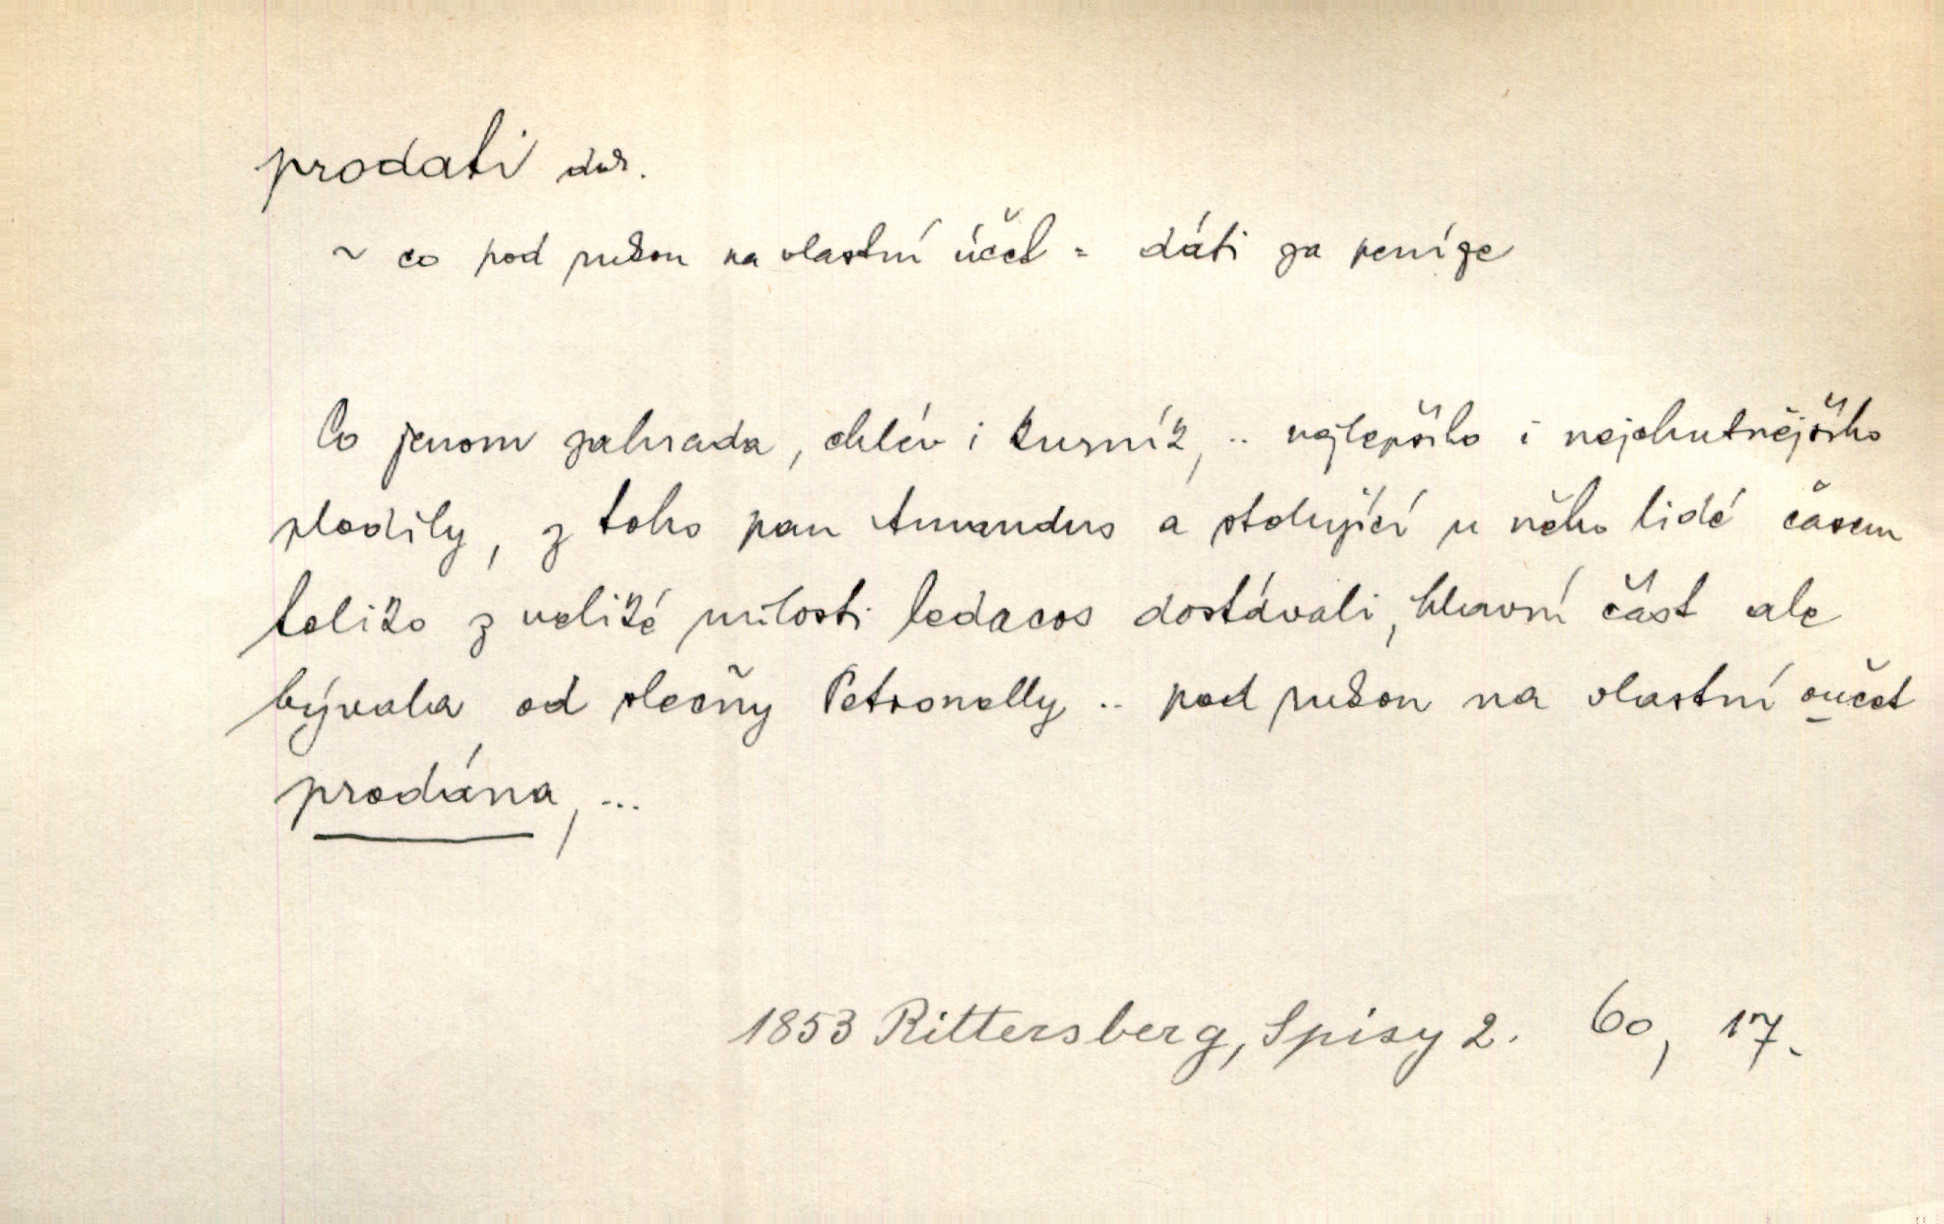 prodati dok.
~ co pod rukou na vlastní účet = dáti za peníze
Co jenom zahrada, chlév i kurník, .. nejlepšího i nejchutnějšího
plodily, z toho pan Amandus a stolující u něho lidé časem
toliko z veliké milosti ledacos dostávali, hlavní část ale
bývala od slečny Petronelly .. pod rukou na vlastní oučet
prodána, ...
1853 Rittersberg, Spisy 2. 60, 17.